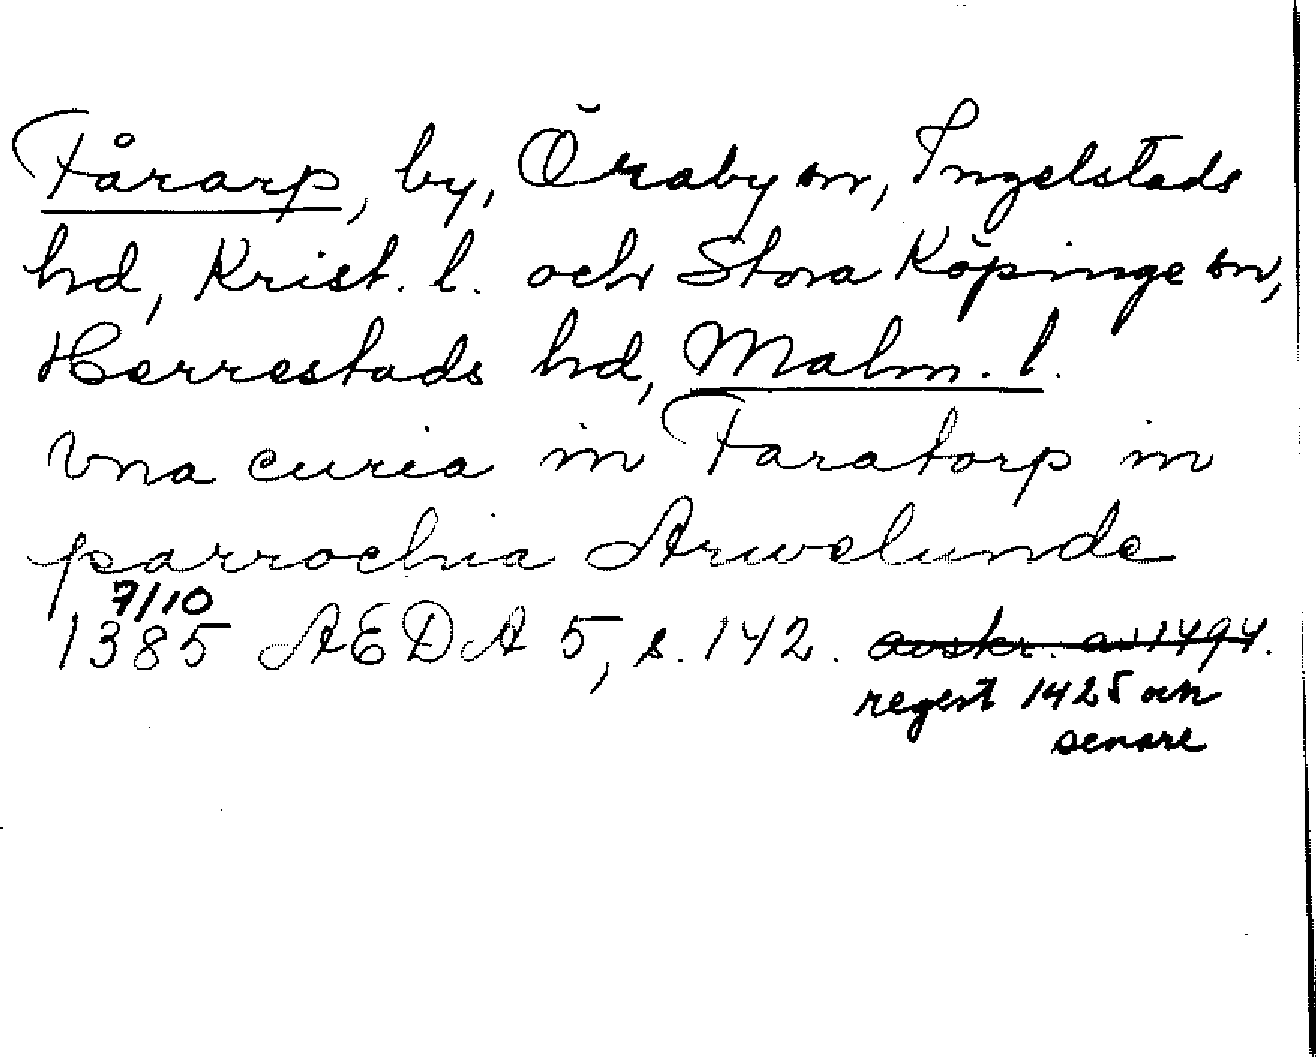 Fårarp, by, Öraby sn, Ingelstads
hd, Krist. l. och Stora Köpinge sn,
Herrestads hd, Malm. l.
Vna curia in Faratorp in
parrochia Arwelunde
7/10
1385 AEDA 5, s. 142. avskr. av 1494.
regest 1425 och
senare